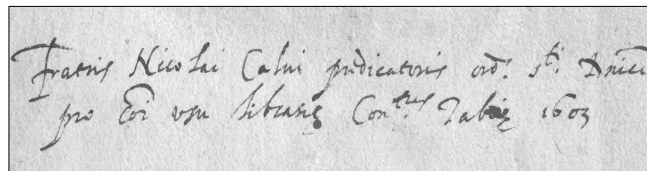 Fratris Nicolai Calui prędicatoris ord. s.ti Dnici
pro Cōi usu librarię Con.tus 1603